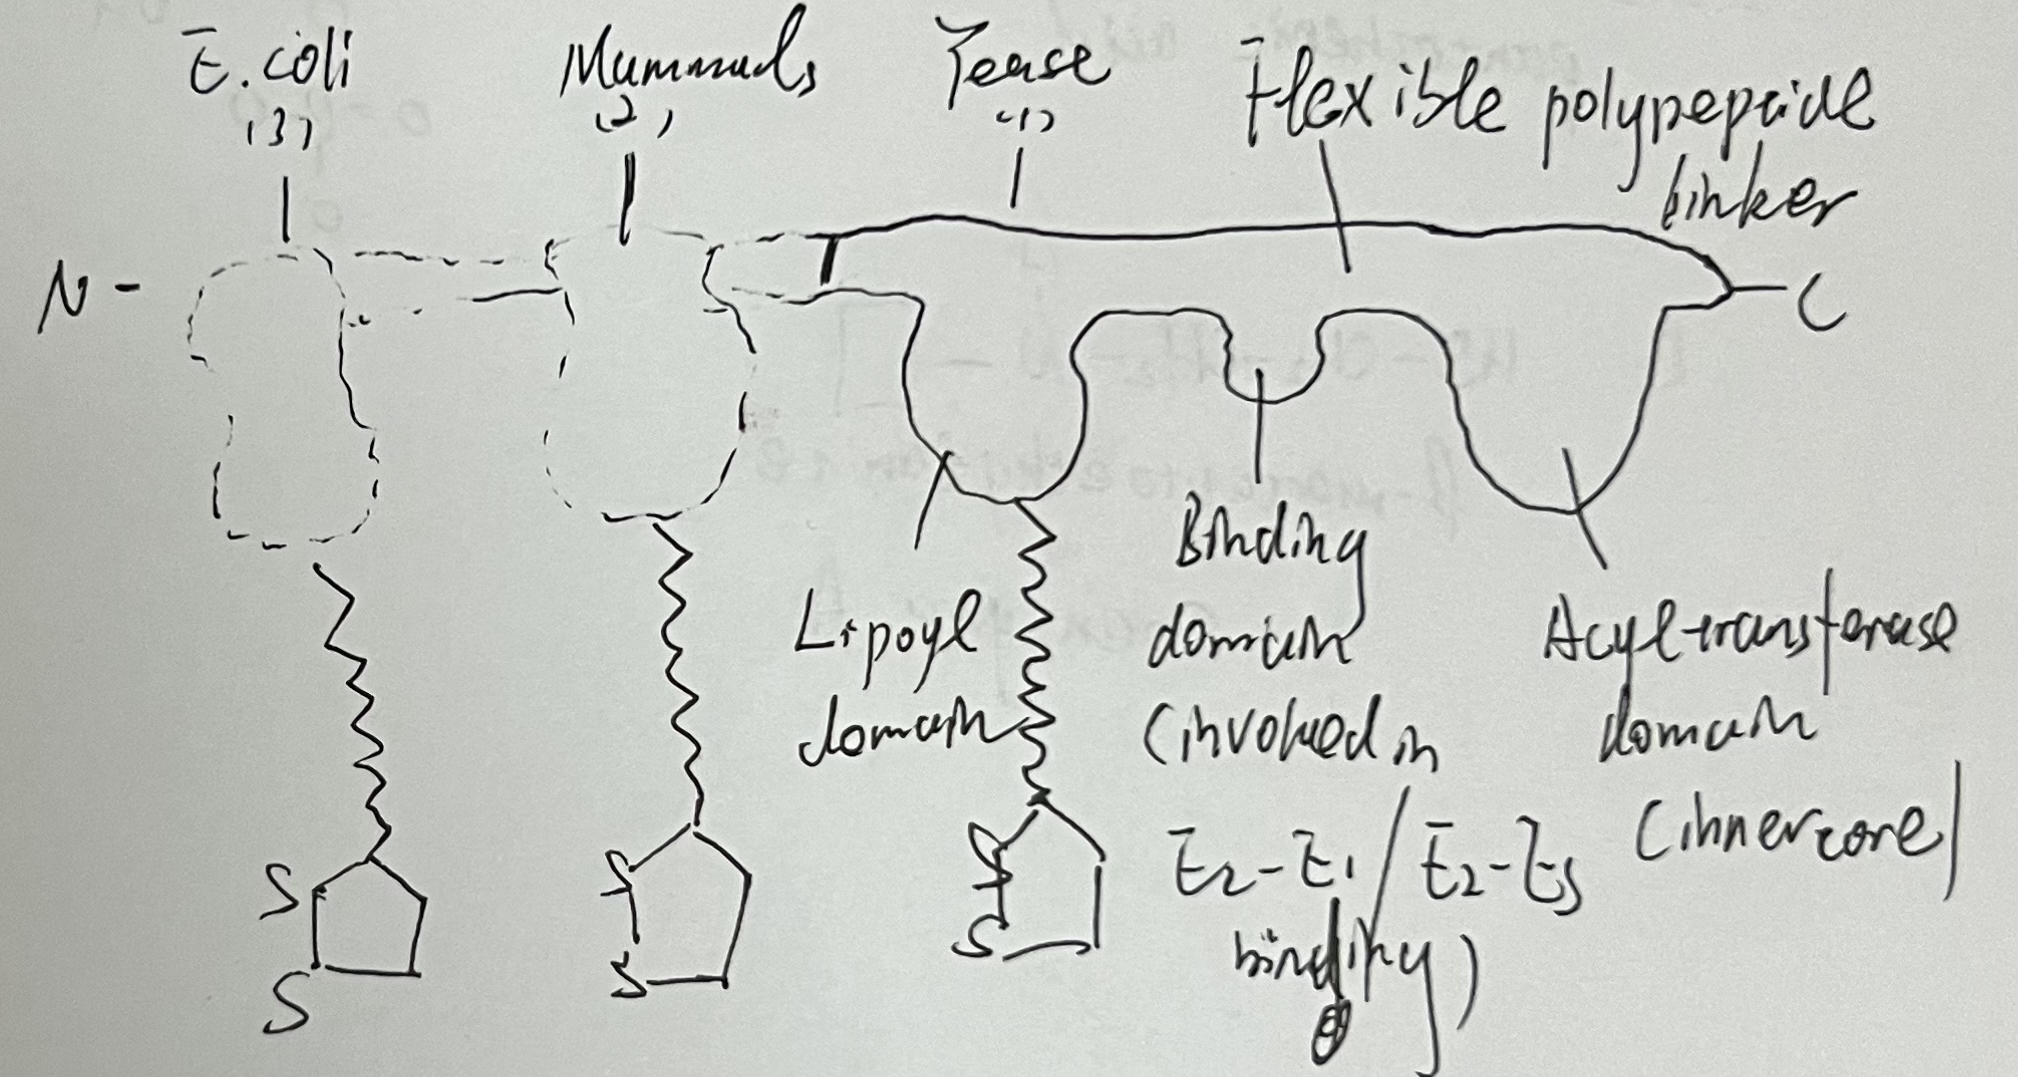 E.coli
(3)
Mammals
(2)
Yease
(1)
Flexible polypepride
linker
N -
- C
Lipoyl
domain
Binding
domain
(involved in
E2-E1/E2-E3
binding)
Acyltransferase
domain
(innercore)
S
S
S
S
S
S